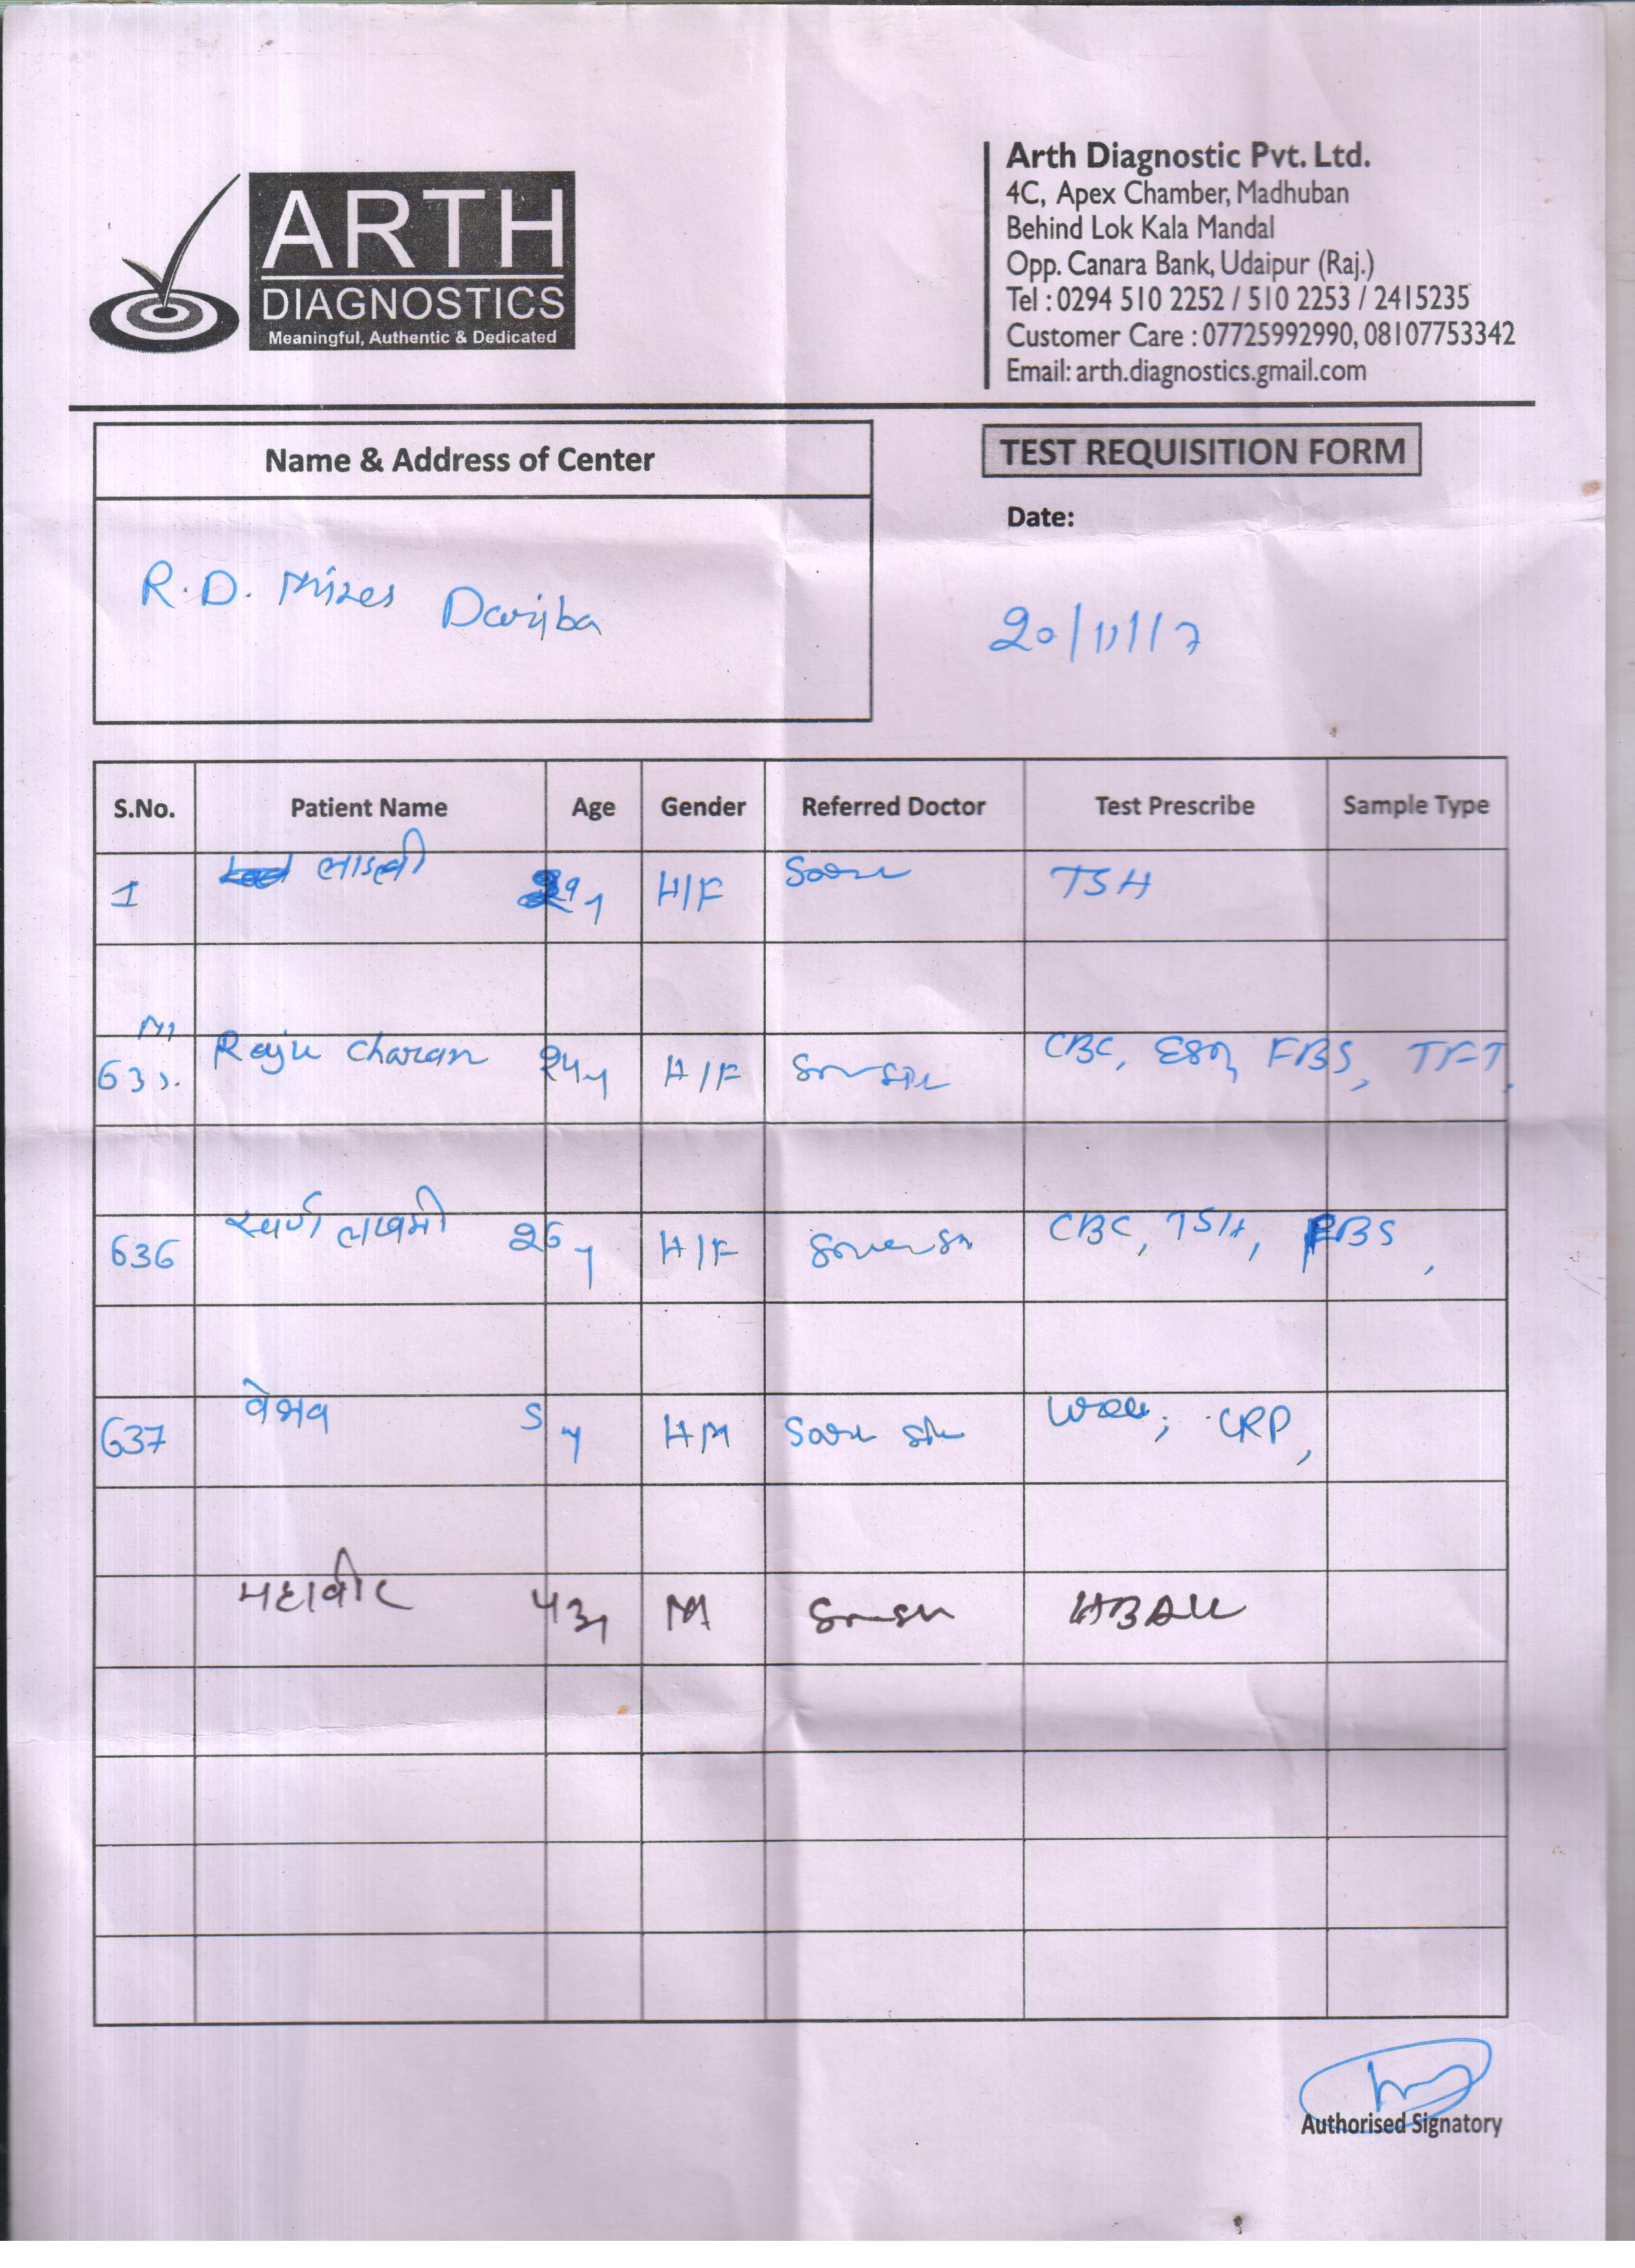 ARTH
DIAGNOSTICS
Meaningful, Authentic & Dedicated
Arth Diagnostic Pvt. Ltd.
4C, Apex Chamber, Madhuban
Behind Lok Kala Mandal
Opp. Canara Bank, Udaipur (Raj.)
Tel : 0294 510 2252 / 510 2253 / 2415235
Customer Care : 07725992990, 08107753342
Email: arth.diagnostics.gmail.com
Name & Address of Center
TEST REQUISITION FORM
Date:
R.D. Mines Dariba
20/11/17
S.No. Patient Name Age Gender Referred Doctor Test Prescribe Sample Type
1 H/F TSH
Raju Charan 24y H/F CBC, ESR, FBS, TFT,
636 स्वर्ण लक्ष्मी 26y H/F CBC, TSH, FBS,
637 वेभव 5y HM CRP,
महावीर 43y M
Authorised Signatory